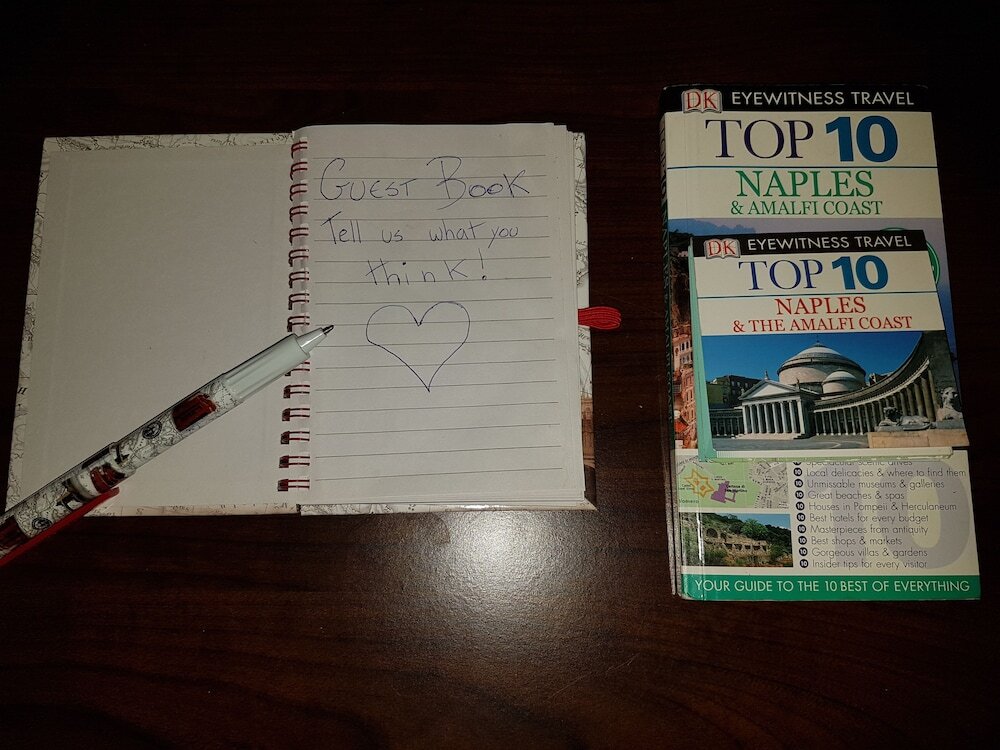 GUEST BOOK
Tell us what you
think!
DK EYEWITNESS TRAVEL
TOP 10
NAPLES
& AMALFI COAST
DK EYEWITNESS TRAVEL
TOP 10
NAPLES
& THE AMALFI COAST
Spectacular scenic drives
10 Local delicacies & where to find them
10 Unmissable museums & galleries
10 Great beaches & spas
10 Houses in Pompeii & Herculaneum
10 Best hotels for every budget
10 Masterpieces from antiquity
10 Best shops & markets
10 Gorgeous villas & gardens
10 Insider tips for every visitor
YOUR GUIDE TO THE 10 BEST OF EVERYTHING